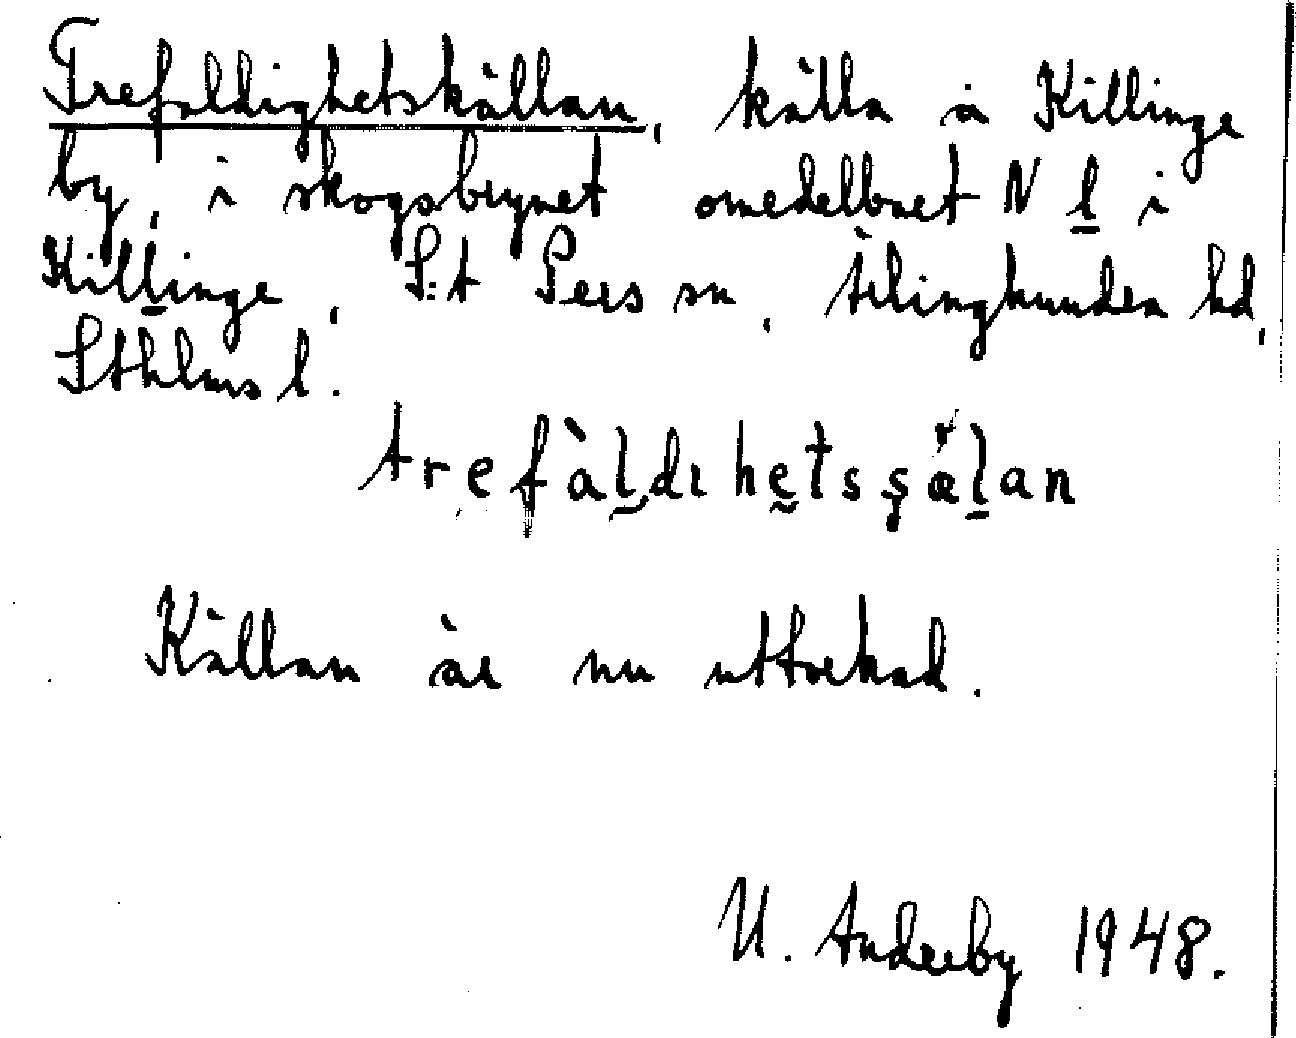 Trefaldighetskällan, källa å Killinge
by, i skogsbrynet omedelbart N l i
Killinge, S:t Pers sn, Ærlinghundra hd,
Sthlms l.
trefàl̠dıhe̮tsşǽl̠an
Källan är nu uttorkad.
U. Anderby 1948.